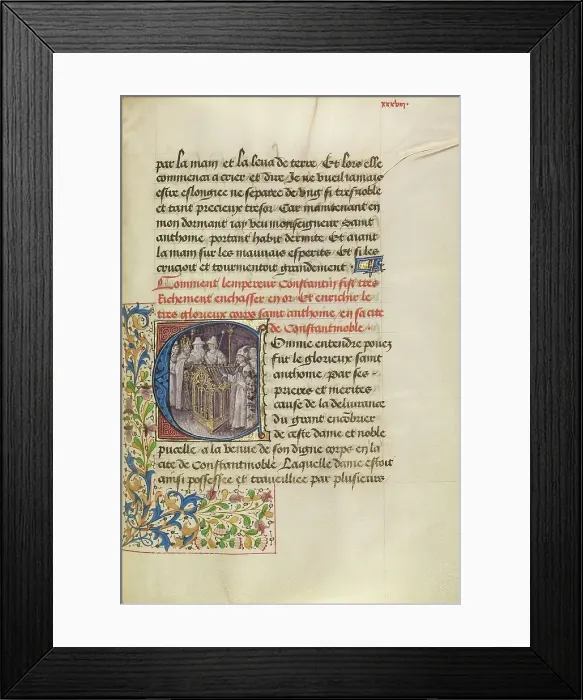 xxxviii.
par la main et la leua de terre. Et lors elle
commenca a crier et dire Je ne vueil iamais
estre eslongiee ne separee de vng si tresnoble
et tant precieux tresor Car maintenant en
mon dormant iay veu monseigneur saint
anthoine portant habit dermite Et aiant
la main sur les mauuais esperits Et si les
coucioit et tourmentoit grandement
Comment lempereur Constantin fist tres
Richement enchasser en or Et enrichir le
tres glorieux corps saint anthoine en sa cite
de Constantinoble
Comme entendre pouez
fut le glorieux saint
anthoine Par ses
prieres et merites
cause de la deliurance
du grant encōbrier
de ceste dame et noble
pucelle a la venue de son digne corps en la
cite de Constantinoble Laquelle dame estoit
ainsi possessee et trauelliee par plusieurs